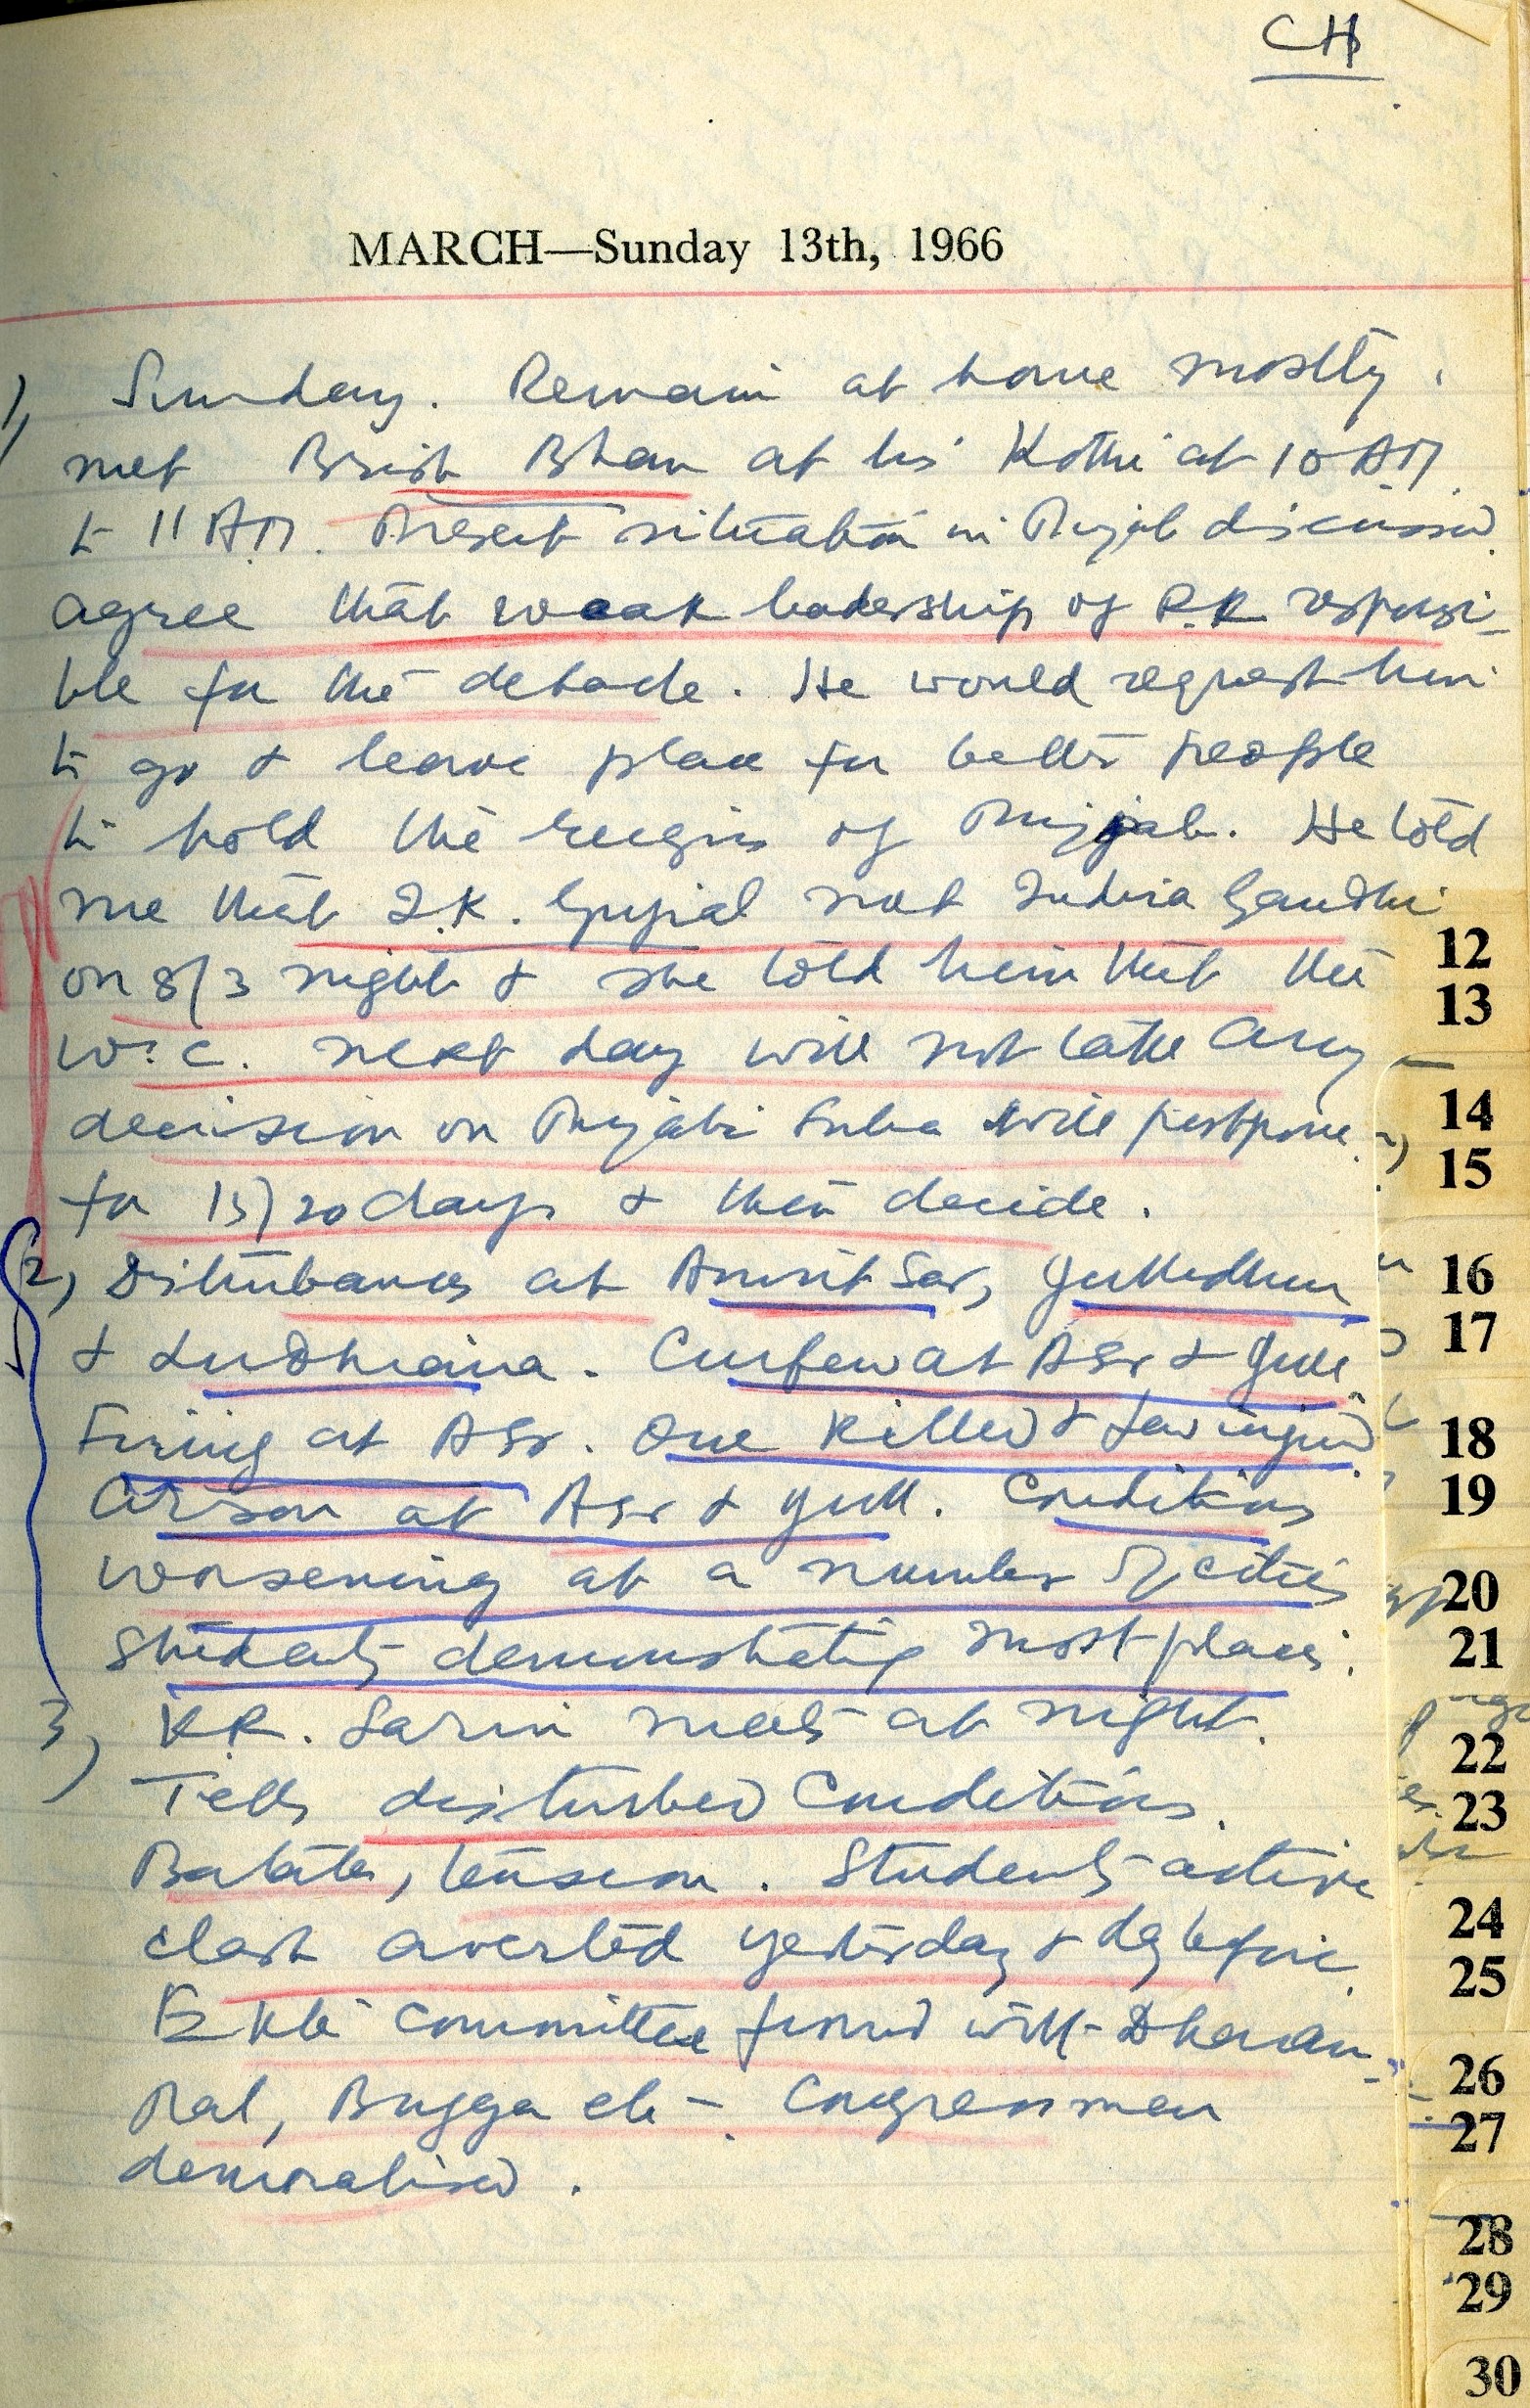 CH
MARCH—Sunday 13th, 1966
1) Sunday. Remain at home mostly.
met Brish Bhan at his Kothi at 10 AM
to 11 AM. Present situation in Punjab discussed.
agree that weak leadership of R.K responsi-
ble for the debacle. He would request him
to go & leave place for better people
to hold the reigns of Punjab. He told
me that I.K. Gujral met Indira Gandhi
on 8/3 night & she told him that the
W.C. next day will not take any
decision on Punjabi Suba will postpone
for 15/20 days & then decide.
2) Disturbances at Amritsar, Jullundhur
& Ludhiana. Curfew at ASr & Jull.
Firing at ASr. One killed & few injured
Arson at ASr & Jull. Conditions
worsening at a number of cities
Students demonstrating most places.
3) K.R. Sarin meets at night.
Tells disturbed Conditions.
Batala, tension. Students active
clash averted yesterday & day before.
Ekta Committee formed with Dharam
Pal, Bugga etc. Congressmen
demoralised.
12
13
14
15
16
17
18
19
20
21
22
23
24
25
26
27
28
29
30